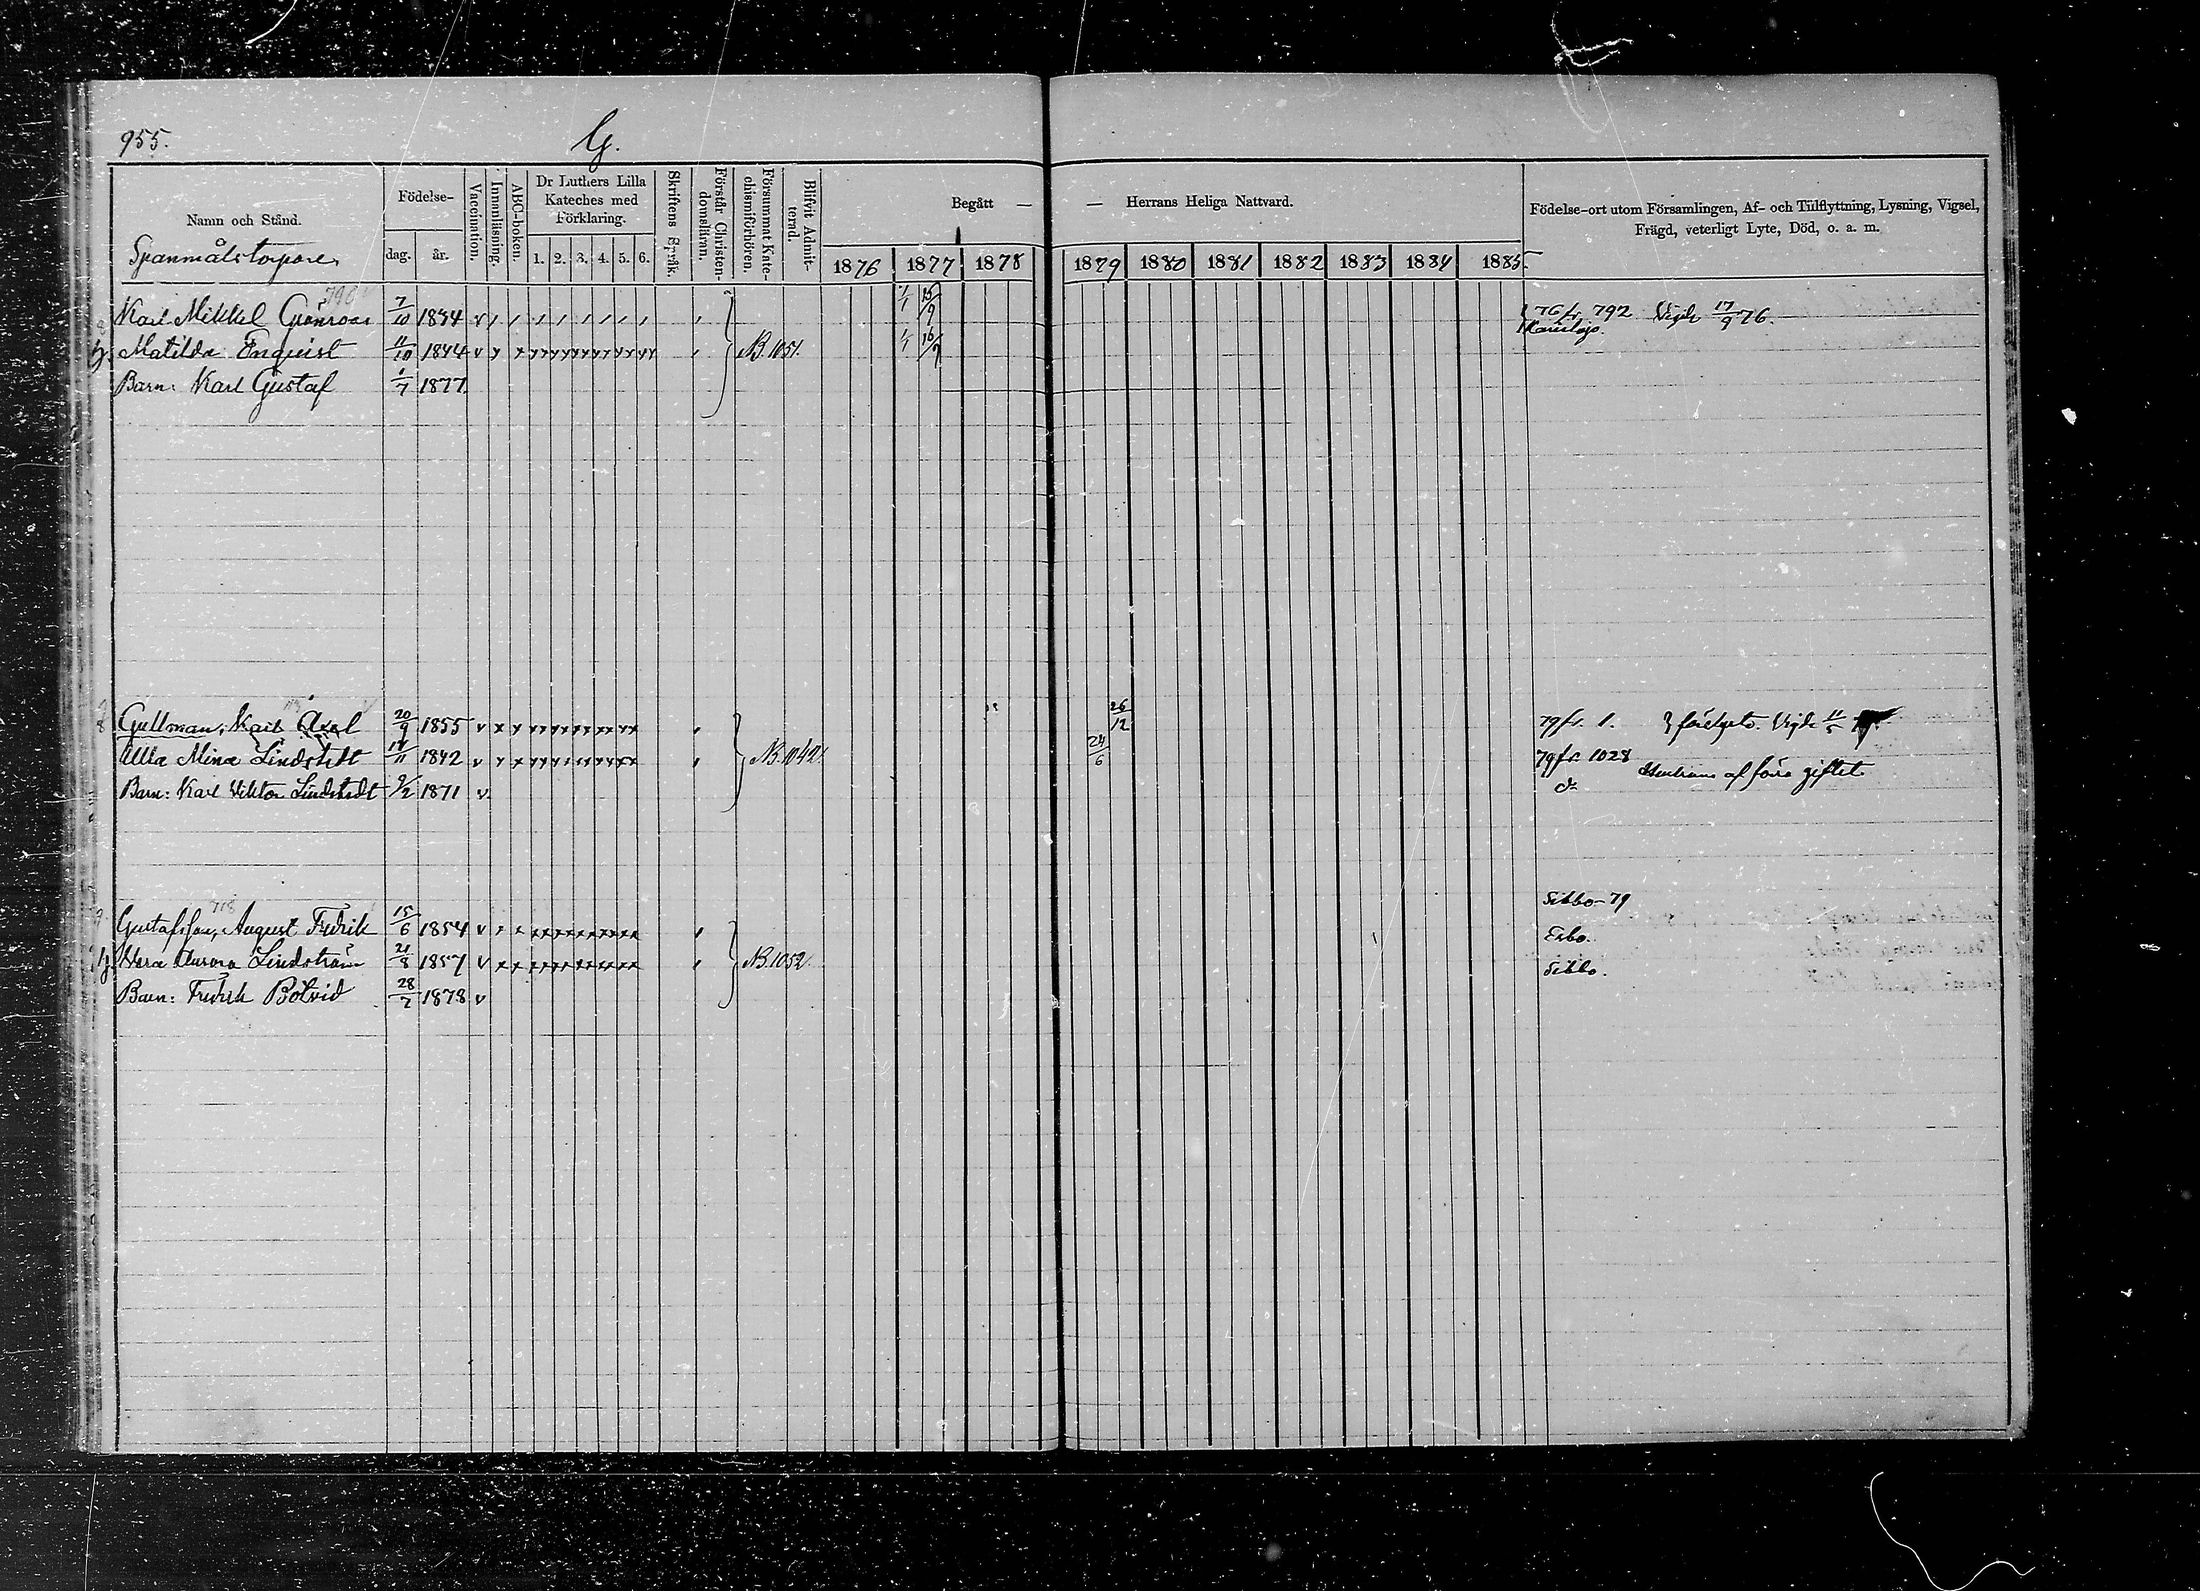 955.
G.
Namn och Stånd.
Spanmålstorpare
Födelse-
dag.
år.
Vaccination.
Innanläsning.
ABC-boken.
Dr Luthers Lilla
Kateches med
Förklaring.
1. 2. 3. 4. 5. 6.
Skriftens Språk.
Förstår Christen-
domsläran.
Försummat Kate-
chismiförhören.
Blifvit Admit-
terad.
Begått —
— Herrans Heliga Nattvard.
1876 1877 1878 1879 1880 1881 1882 1883 1884 1885
Födelse-ort utom Församlingen, Af- och Tillflyttning, Lysning, Vigsel,
Frägd, veterligt Lyte, Död, o. a. m.
Karl Mikkel Grönroos 7/10 1834 v 1/1 15/9 76 fr. 792 Vigde 17/9 76.
Matilda Enquist 11/10 1844 v NB.1051. 1/1 16/9 Karislojo.
Barn: Karl Gustaf 1/7 1877.
Gullman, Karl Axel 20/9 1855 v 26/12 79 fr. 1. Vigde 11/5
Ulla Mina Lindstedt 14/11 1842 v NB.1042. 24/6 79 fr. 1028
Barn: Karl Viktor Lindstedt 9/2 1871 v d:o Hustrens af förra giftet
Sibbo-79
Gustafsson, August Fredrik 15/6 1854 v Esbo.
Aurora Lindström 21/8 1857 v NB.1052. Sibbo.
Barn: Fredrik Botvid 28/7 1878 v